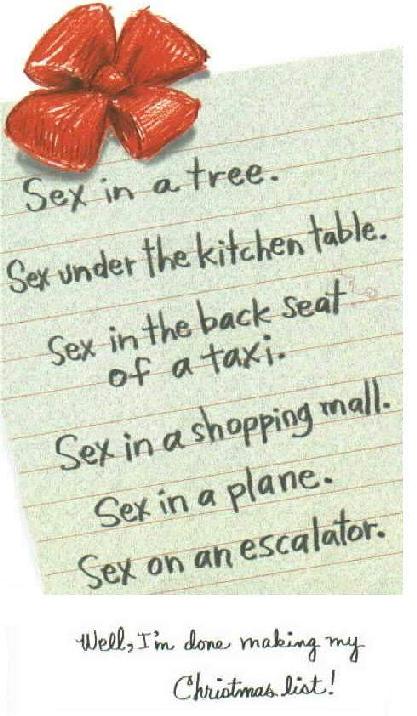 Sex in a tree.
Sex under the kitchen table.
Sex in the back seat
of a taxi.
Sex in a shopping mall.
Sex in a plane.
Sex on an escalator.
Well, I'm done making my
Christmas list!